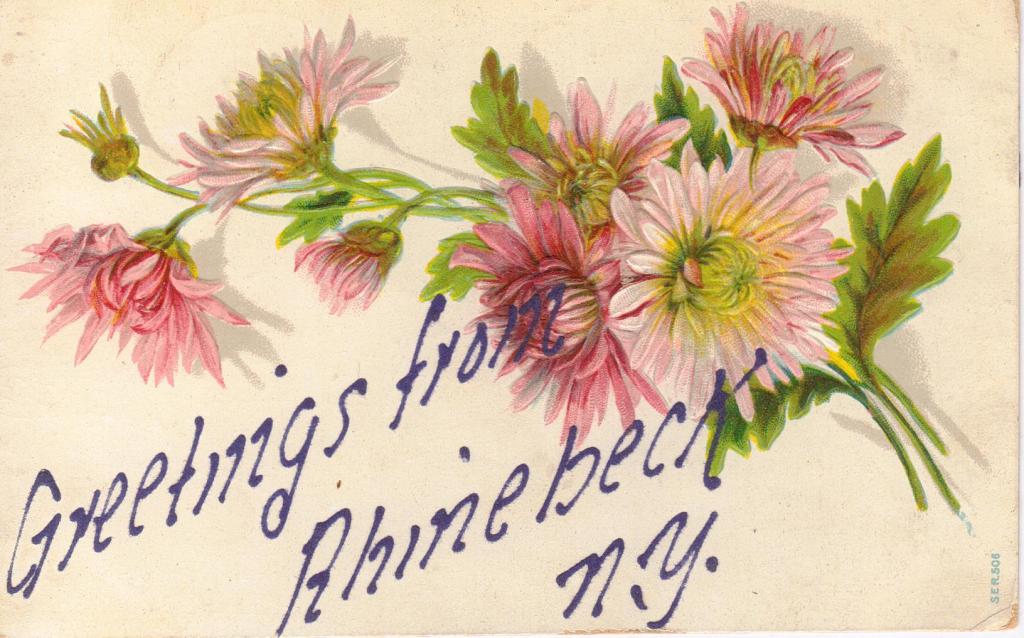 Greetings from
Rhinebeck
N.Y.
SER.506